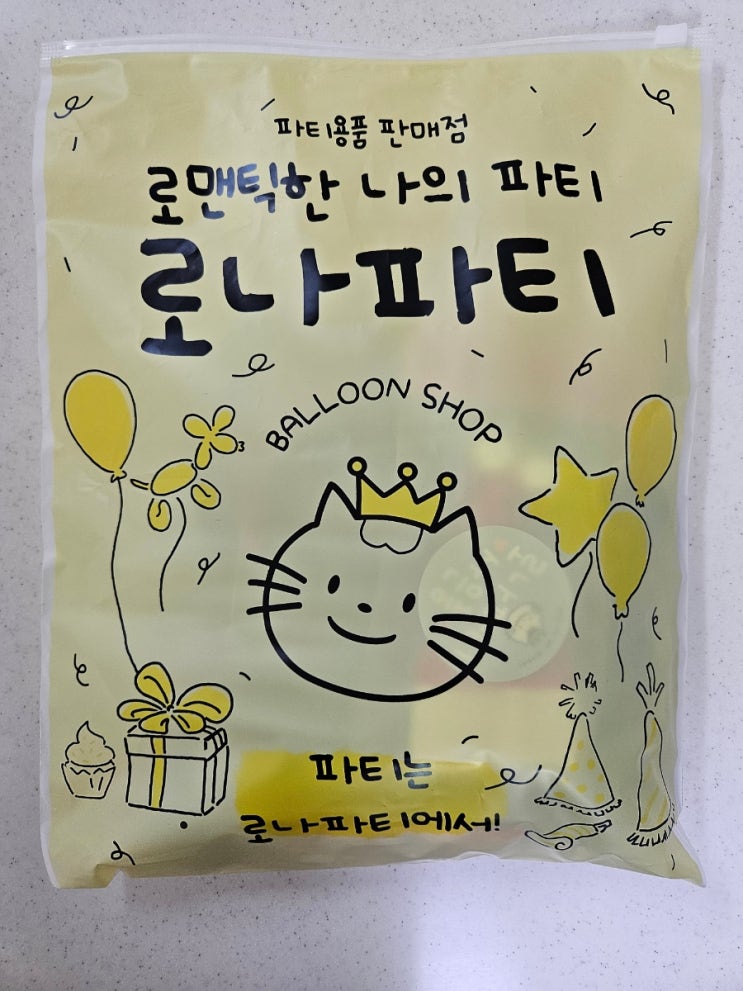 파티용품 판매점
로맨틱한 나의 파티
로나파티
BALLOON SHOP
파티는
로나파티에서!